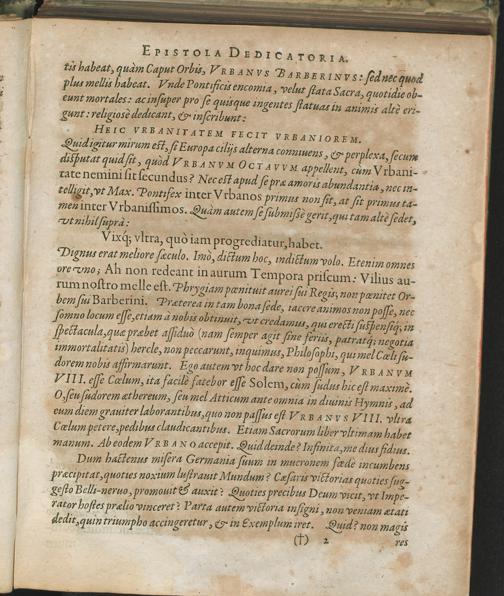 EPISTOLA DEDICATORIA.
tis habeat, quàm Caput Orbis, VRBANVS BARBERINVS: sed nec quod
plus mellis habeat. Vnde Pontificis encomia, velut stata Sacra, quotidie ob-
eunt mortales: ac insuper pro se quisque ingentes statuas in animis altè eri-
gunt: religiosè dedicant, & inscribunt:
HEIC VRBANITATEM FECIT VRBANIOREM.
Quid igitur mirum est, si Europa cilijs alterna conniuens, & perplexa, secum
disputat quid sit, quòd VRBANVM OCTAVVM appellent, cùm Vrbani-
tate nemini sit secundus? Nec est apud se præ amoris abundantia, nec in-
telligit, vt Max. Pontifex inter Vrbanos primus non sit, at sit primus ta-
men inter Vrbanissimos. Quàm autem se submissè gerit, qui tam altè sedet,
vt nihil suprà:
Vixq; vltra, quò iam progrediatur, habet.
Dignus erat meliore sæculo. Imò, dictum hoc, indictum volo. Etenim omnes
ore vno; Ah non redeant in aurum Tempora priscum: Vilius au-
rum nostro melle est. Phrygiam pœnituit aurei sui Regis, non pœnitet Or-
bem sui Barberini. Præterea in tam bona sede, iacere animos non posse, nec
somno locum esse, etiam à nobis obtinuit, vt credamus, qui erecti suspensiq; in
spectacula, quæ præbet assiduò (nam semper agit sine ferijs, patratq; negotia
immortalitatis) hercle, non peccarunt, inquimus, Philosophi, qui mel Cœli su-
dorem nobis affirmarunt. Ego autem vt hoc dare non possum, VRBANVM
VIII. esse Cœlum, ita facilè fatebor esse Solem, cùm sudus hic est maximè.
O, seu sudorem æthereum, seu mel Atticum ante omnia in diuinis Hymnis, ad
eum diem grauiter laborantibus, quo non passus est VRBANVS VIII. vltra
Cœlum petere, pedibus claudicantibus. Etiam Sacrorum liber vltimam habet
manum. Ab eodem VRBANO accepit. Quid deinde? Infinita, me dius fidius.
Dum hactenus misera Germania suum in mucronem fœdè incumbens
præcipitat, quoties noxium lustrauit Mundum? Cæsaris victorias quoties sug-
gesto Belli-neruo, promouit & auxit? Quoties precibus Deum vicit, vt Impe-
rator hostes prælio vinceret? Parta autem victoria insigni, non veniam ætati
dedit, quin triumpho accingeretur, & in Exemplum iret. Quid? non magis
(†) 2 res